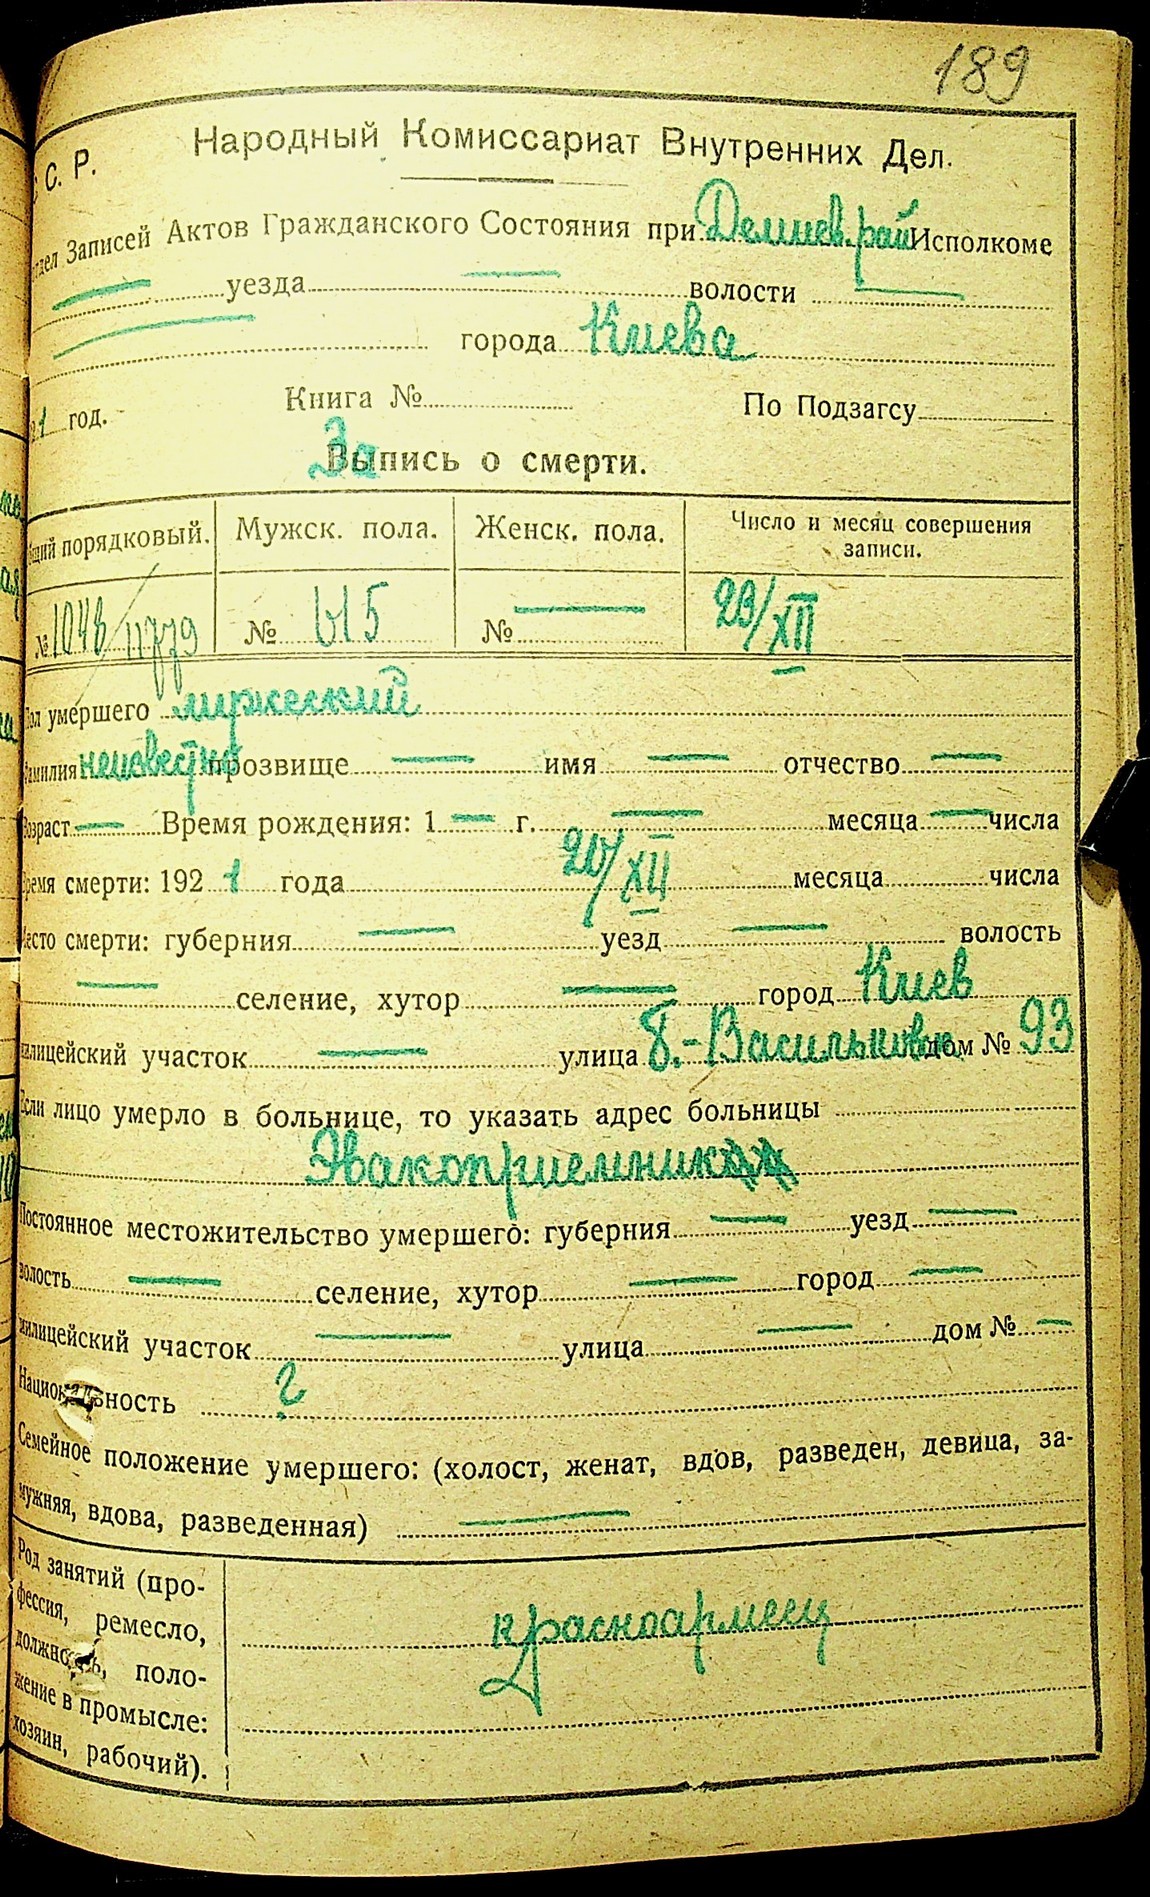 189
С. Р. Народный Комиссариат Внутренних Дел.
Записей Актов Гражданского Состояния при Демиев. рай Исполкоме
уезда волости
города Киева
1 год. Книга № По Подзагсу
Запись о смерти.
порядковый. Мужск. пола. Женск. пола. Число и месяц совершения
записи.
№ 1048/11779 № 615 № — 23/XII
Пол умершего мужеский
Фамилия неизвестно прозвище — имя — отчество —
Возраст — Время рождения: 1 — г. — месяца — числа
Время смерти: 192 1 года 20/XII месяца числа
Место смерти: губерния — уезд — волость
— селение, хутор — город Киев
милицейский участок — улица Б.-Васильковск дом № 93
Если лицо умерло в больнице, то указать адрес больницы
Эвакоприемник
Постоянное местожительство умершего: губерния — уезд —
волость — селение, хутор — город —
милицейский участок — улица — дом № —
Национальность ?
Семейное положение умершего: (холост, женат, вдов, разведен, девица, за-
мужняя, вдова, разведенная) —
Род занятий (про-
фессия, ремесло,
должность, поло-
жение в промысле:
хозяин, рабочий).
красноармеец